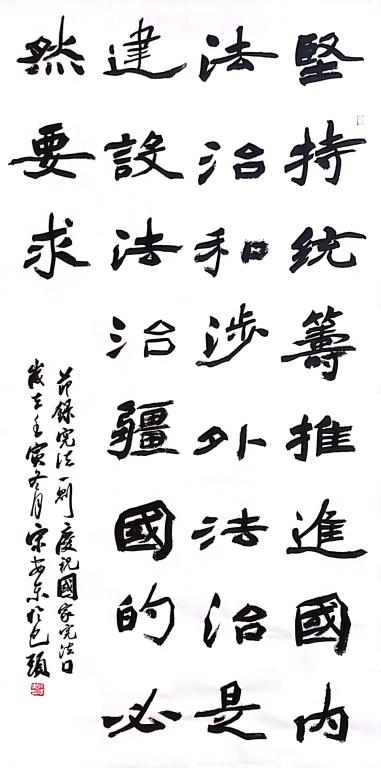 堅持统籌推進國内
法治和涉外法治是
建設法治疆國的必
然要求
节録宪法一則慶祝國家宪法日
歲在壬寅冬月宋安东於包頭